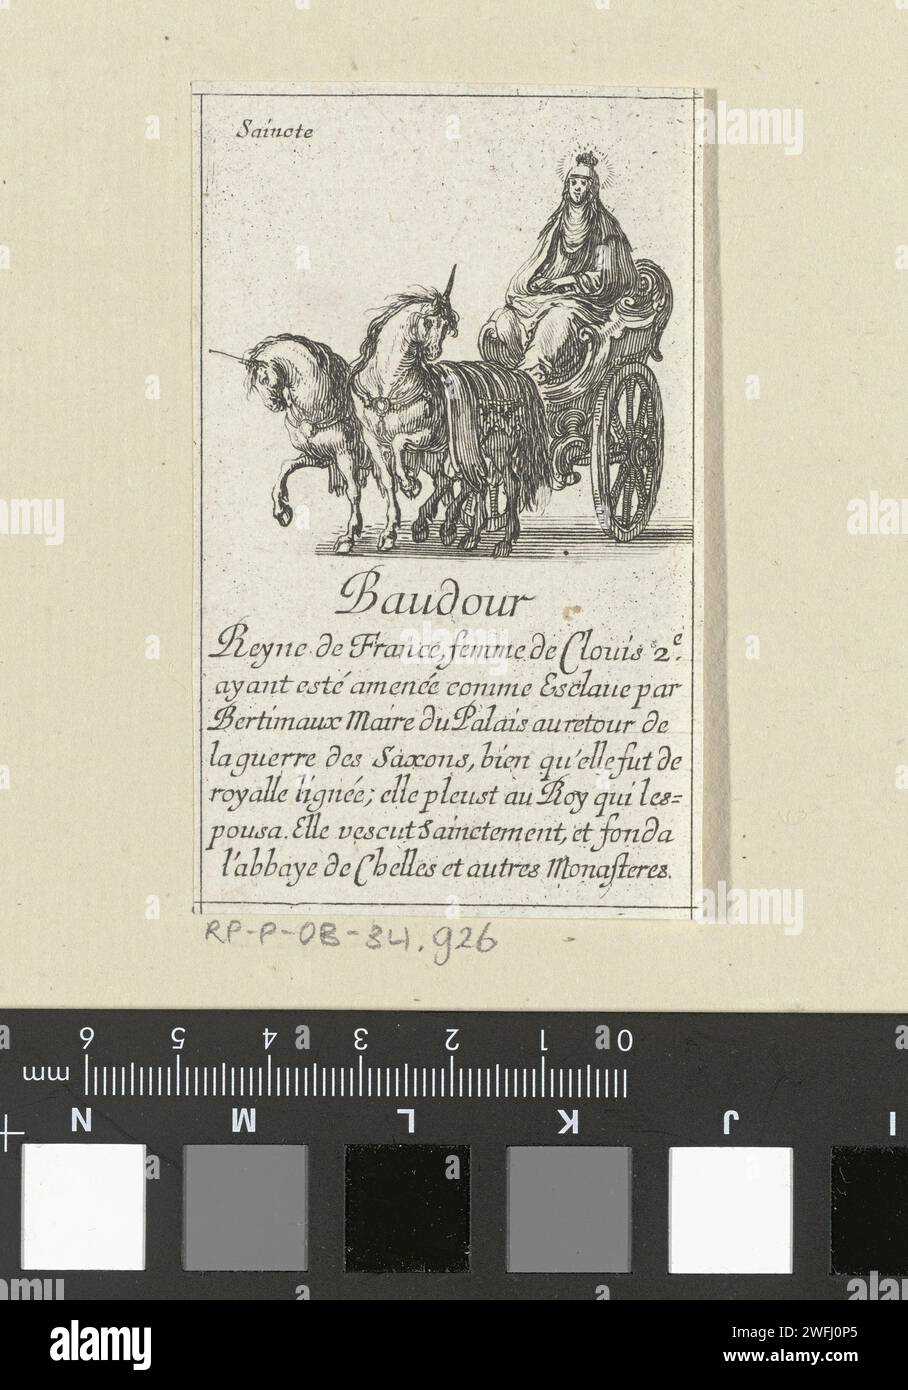 Saincte
Baudour
Reyne de France, femme de Clouis 2e.
ayant esté amenée comme Esclaue par
Bertimaux Maire du Palais au retour de
la guerre des Saxons, bien qu'elle fut de
royalle lignée; elle pleust au Roy qui les=
pousa. Elle vescut Sainctement, et fonda
l'abbaye de Chelles et autres Monasteres.
RP-P-OB-34.926
6 5 4 3 2 1 0
mm
N M L K J I
alamy
Image ID: 2WFJ0P5
www.alamy.com